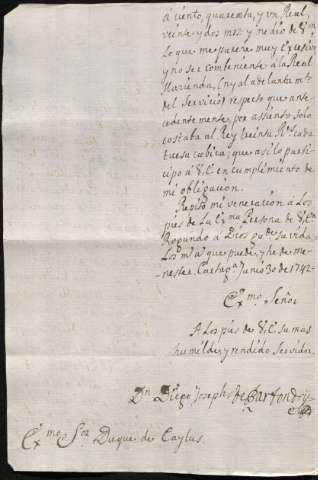 á ciento, quarenta, y un, Real,
veinte y dos mrs. y medio de Vn.
Lo que me parece muy Exesivo
y no ser combeniente á la Real
Hacienda, (ny al adelantam.to
del Servicio) respeto que ante
cedentemente, por assiento, solo
costaba al Rey treinta Rs. cada
tuesa cubica; que asi lo parti
cipo á V.E. en cumplimiento de
mi obligacion.
Repito mi veneracion á Los
pies de La Ex.ma Persona de V.E.
Rogando á Dios gu.de su vida
Los m.s a.s que puede, y he de me-
nester. Cartag.na Junio 30 de 1742
Ex.mo Señor
A Los pies de V.E. su mas
humilde, y rendido servidor,
Dn. Diego Joseph de
Ex.mo Sor. Duque de Caylus.